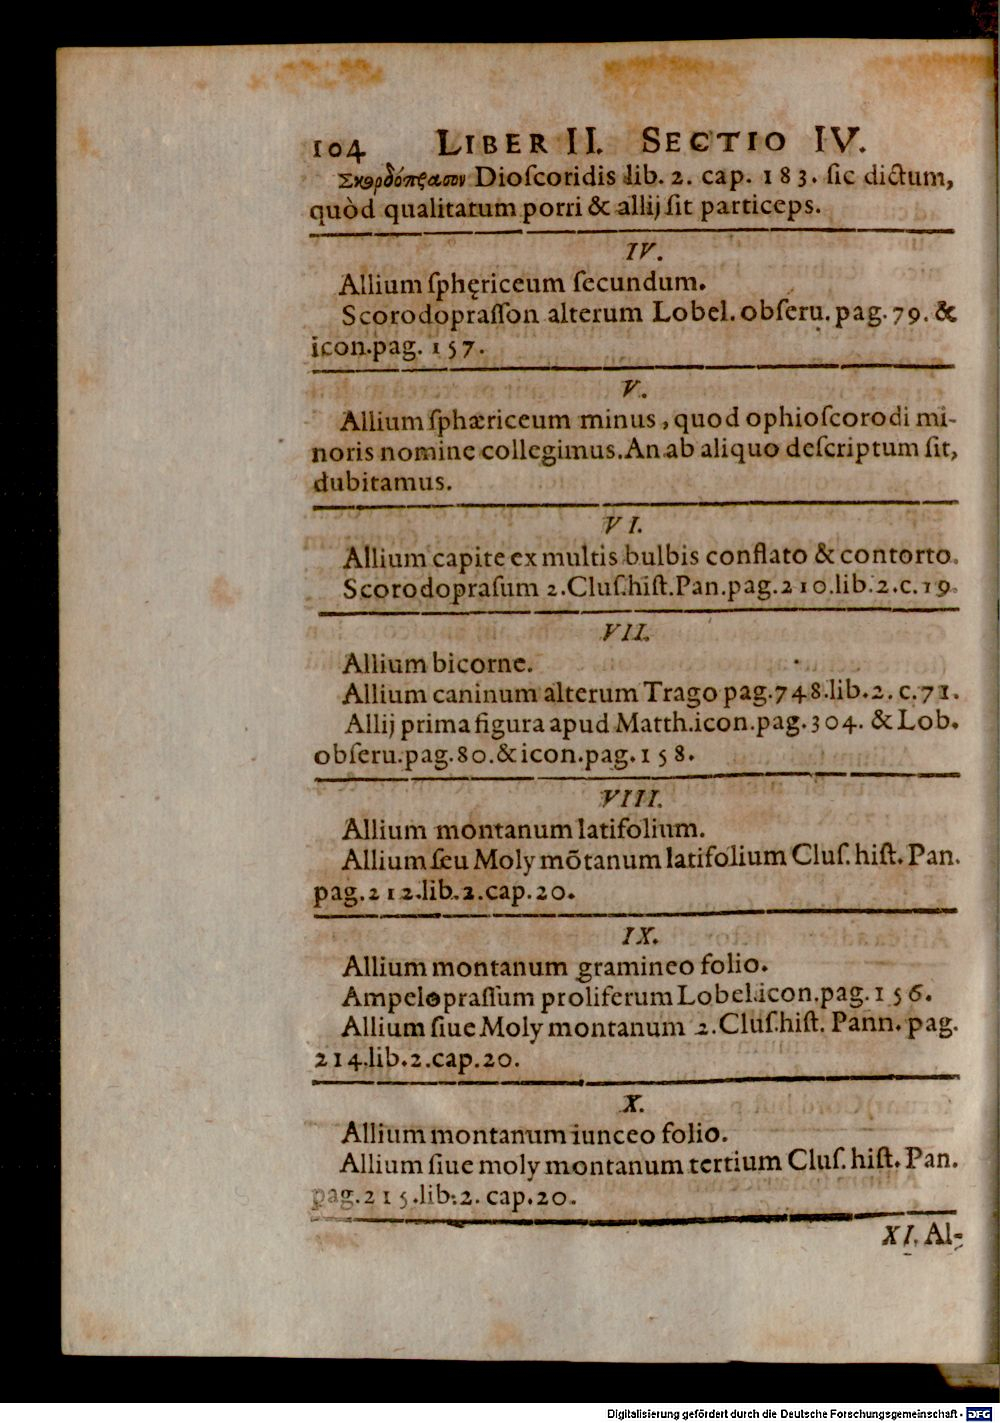 104 LIBER II. SECTIO IV.
Σκορδόπρασον Dioſcoridis lib. 2. cap. 183. ſic dictum,
quòd qualitatum porri & allij ſit particeps.
IV.
Allium ſphęriceum ſecundum.
Scorodopraſſon alterum Lobel. obſeru. pag. 79. &
icon. pag. 157.
V.
Allium ſphæriceum minus, quod ophioſcorodi mi-
noris nomine collegimus. An ab aliquo deſcriptum ſit,
dubitamus.
VI.
Allium capite ex multis bulbis conflato & contorto.
Scorodopraſum 2. Cluſ. hiſt. Pan. pag. 210. lib. 2. c. 19.
VII.
Allium bicorne.
Allium caninum alterum Trago pag. 748. lib. 2. c. 71.
Allij prima figura apud Matth. icon. pag. 304. & Lob.
obſeru. pag. 80. & icon. pag. 158.
VIII.
Allium montanum latifolium.
Allium ſeu Moly mõtanum latifolium Cluſ. hiſt. Pan.
pag. 212. lib. 2. cap. 20.
IX.
Allium montanum gramineo folio.
Ampelopraſſum proliferum Lobel. icon. pag. 156.
Allium ſiue Moly montanum 2. Cluſ. hiſt. Pann. pag.
214. lib. 2. cap. 20.
X.
Allium montanum iunceo folio.
Allium ſiue moly montanum tertium Cluſ. hiſt. Pan.
pag. 215. lib. 2. cap. 20.
XI. Al-
Digitalisierung gefördert durch die Deutsche Forschungsgemeinschaft - DFG